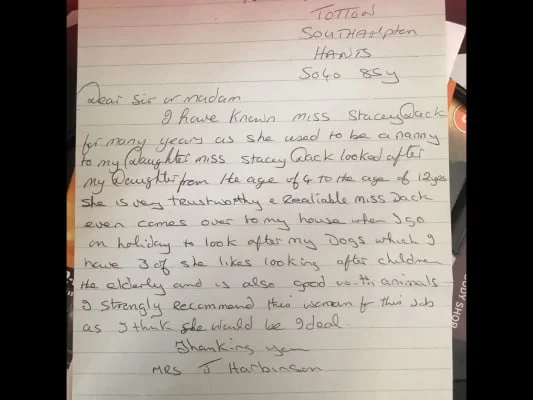 TOTTON
SOUTHAMPTON
HANTS
SO40 8SY
Dear Sir or madam
I have known miss Stacey Dack
for many years as she used to be a nanny
to my Daughter miss Stacey Dack looked after
my Daughter from the age of 4 to the age of 12yrs
She is very trustworthy & Realiable miss Dack
even comes over to my house when I go
on holiday to look after my Dogs which I
have 3 of she likes looking after children
the elderly and is also good with animals
I strongly recommend this woman for this Job
as I think she would be Ideal
Thanking you
MRS J Harbinson
BODY SHOP